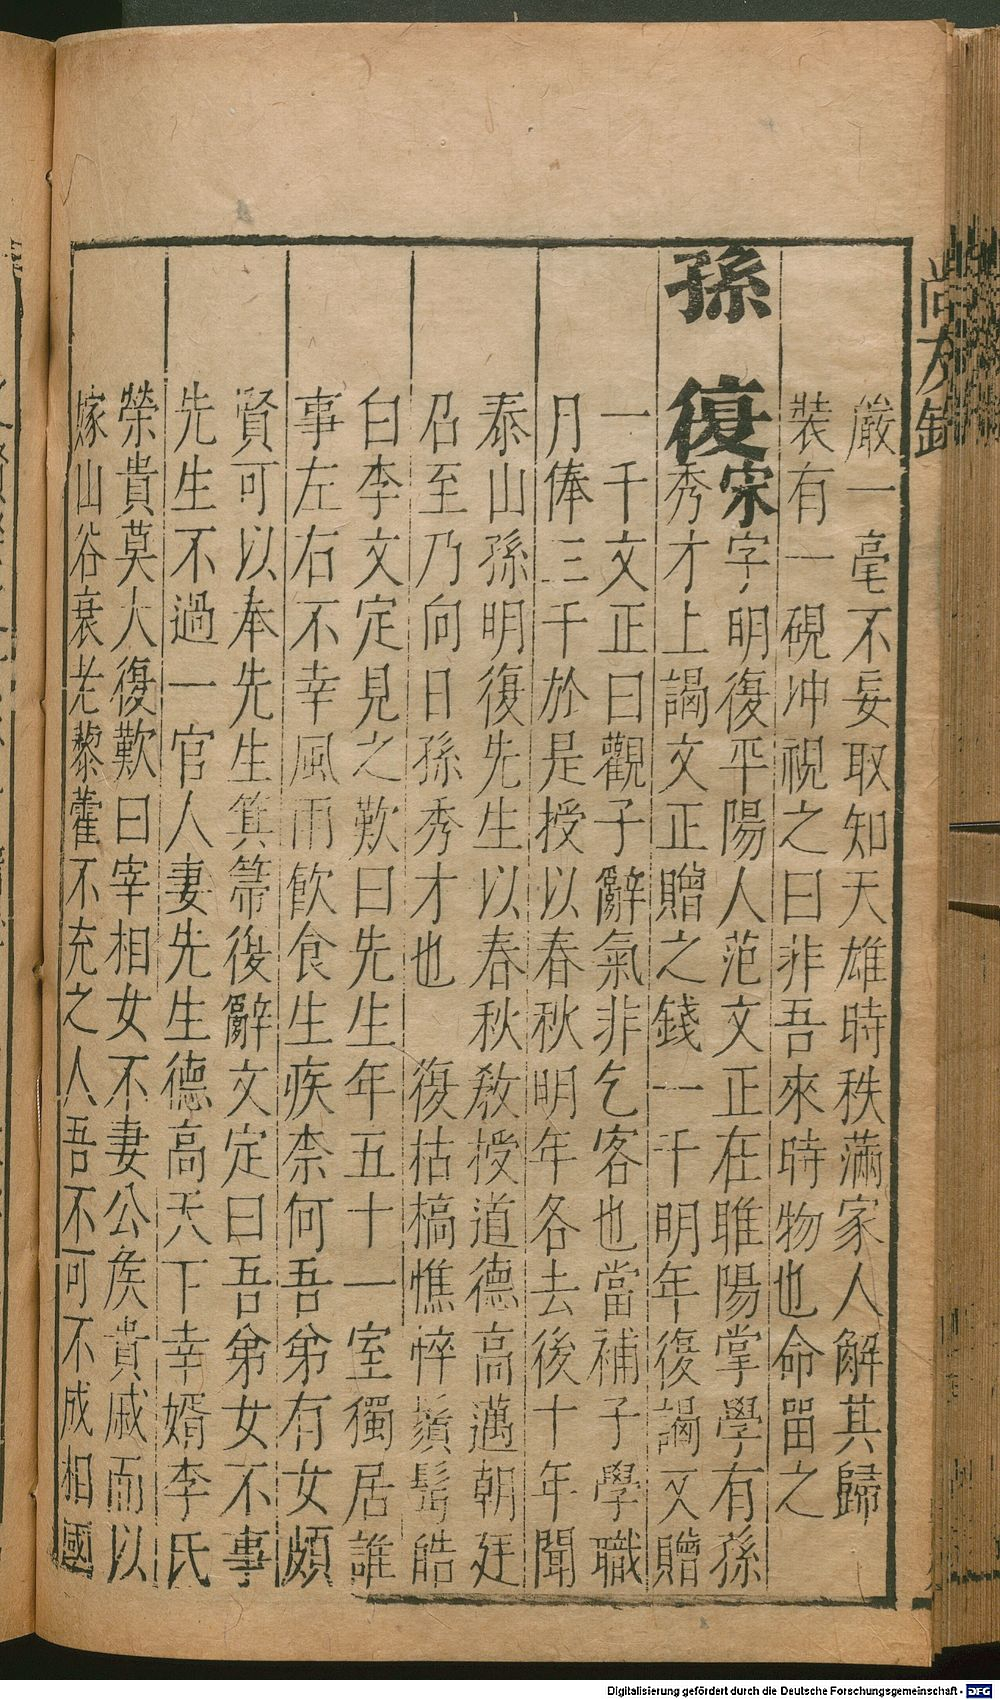 嚴一毫不妄取知天雄時秩滿家人解其歸
裝有一硯冲視之曰非吾來時物也命畱之
孫復宋字明復平陽人范文正在睢陽掌學有孫
秀才上謁文正贈之錢一千明年復謁又贈
一千文正曰觀子辭氣非乞客也當補子學職
月俸三千於是授以春秋明年各去後十年聞
泰山孫明復先生以春秋敎授道德高邁朝廷
召至乃向日孫秀才也 復枯槁憔悴鬚髩皓
白李文定見之歎曰先生年五十一室獨居誰
事左右不幸風雨飲食生疾柰何吾弟有女頗
賢可以奉先生箕箒復辭文定曰吾弟女不事
先生不過一官人妻先生德高天下幸婿李氏
榮貴莫大復歎曰宰相女不妻公侯貴戚而以
嫁山谷衰老藜藿不充之人吾不可不成相國
尚友錄
Digitalisierung gefördert durch die Deutsche Forschungsgemeinschaft - DFG